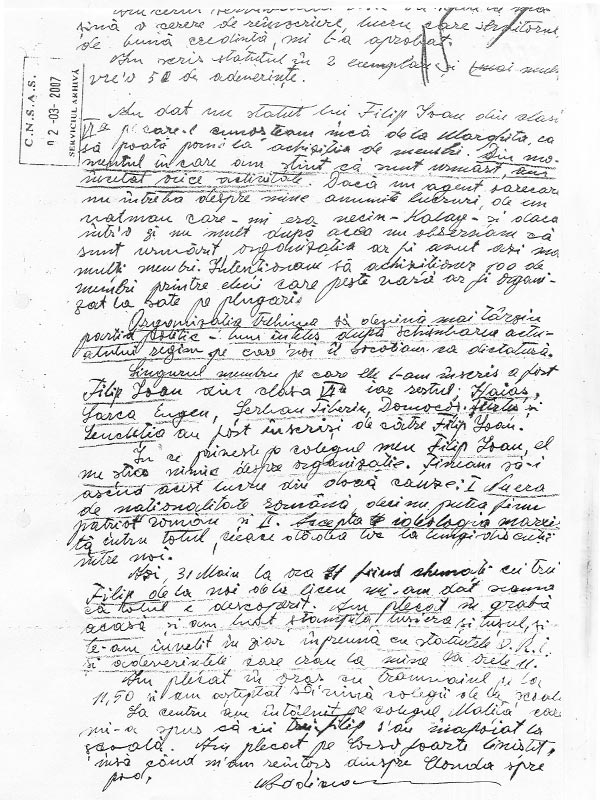 sină o cerere de reînscriere, lucru care
de bună credință, mi l-a aprobat.
Am scris statutul în 2 exemplare și
vre'o 50 de adeverințe.
C.N.S.A.S.
02-03-2007
SERVICIUL ARHIVĂ
Am dat un statut lui Filip Ioan din clasa
VI a pe care-l cunoșteam încă de la Marghita, ca
să poată porni la achiziția de membri. Din mo-
mentul în care am știut că sunt urmărit, am
încetat orice activitate. Dacă un agent oarecare
nu întreba despre mine anumite lucruri, de un
vatman care-mi era vecin - Kalay - și dacă
într'o zi nu mult după aceea nu observam că
sunt urmărit organizația ar fi avut azi mai
mulți membri. Intenționam să achiziționez 100 de
membri printre elevi care peste vară ar fi organi-
zat la sate pe plugari.
Organizația trebuia să devină mai târziu
partid politic - bine înțeles după schimbarea actu-
alului regim pe care noi îl socoteam ca dictatură.
Singurul membru pe care eu l-am înscris a fost
Filip Ioan din clasa VI a iar restul: Haiaș,
Sarca Eugen, Șerban Tiberiu, Domocoș, și
au fost înscriși de către Filip Ioan.
În ce privește pe colegul meu Filip Ioan, el
nu știa nimic despre organizație. Țineam să-i
ascund acest lucru din două cauze: I Nu era
de naționalitate română, deci nu putea fi un
patriot român și II. Accepta ideologia marxis-
tă întru totul, ceeace dădea loc la lungi discuții
între noi.
Azi, 31 Mai la ora 11 fiind chemați cei trei
Filip de la noi de la liceu mi-am dat seama
că totul e descoperit. Am plecat în grabă
acasă și am luat ștampila tușiera și tușul, și
le-am învelit în ziar împreună cu statutele
și adeverințele care erau la mine la orele 11.
Am plecat în oraș cu tramvaiul pe la
11,50 și am așteptat să vină colegii de la școală
La centru am întâlnit pe colegul Maliță care
mi-a spus că cei trei Filip s'au înapoiat la
școală. Am plecat pe Corso foarte liniștit,
însă când m'am reîntors dinspre Londra spre
pod,